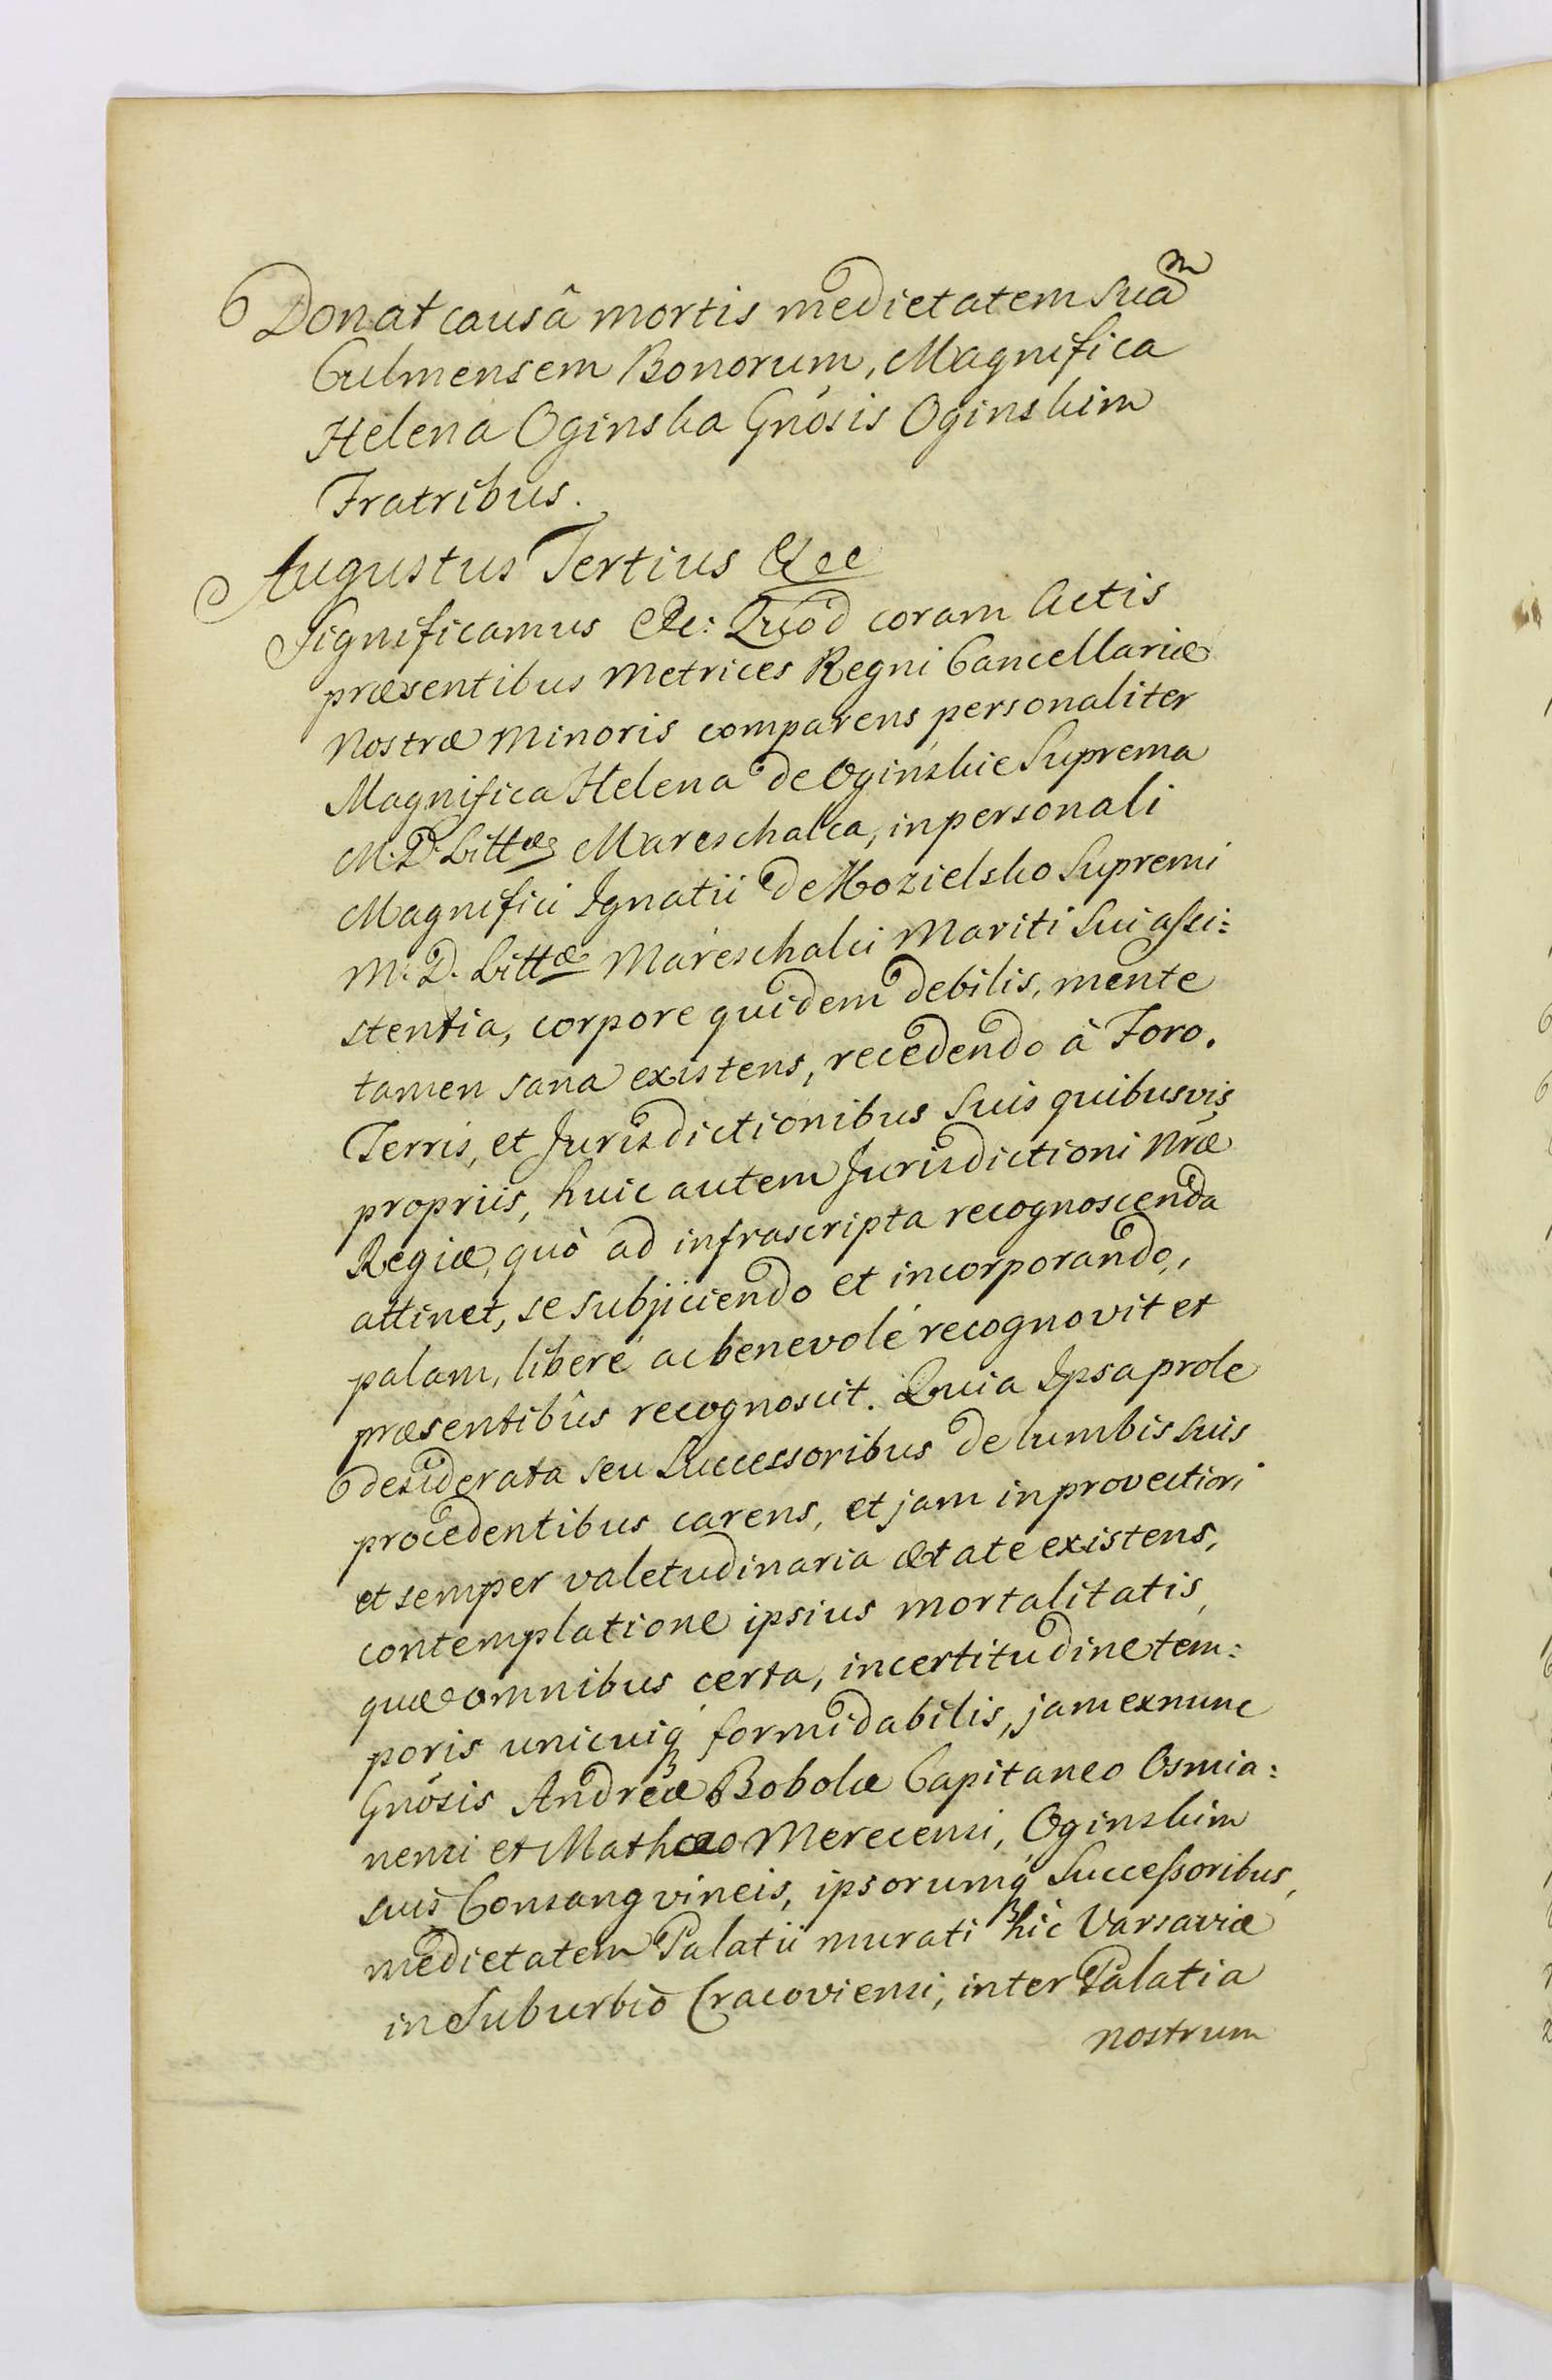 Donat causâ mortis medietatem suam
Culmensem Bonorum, Magnifica
Helena Oginska Gnosis Oginskim
Fratribus.
Augustus Tertius &cc
Significamus &c: Quod coram Actis
præsentibus Metrices Regni Cancellariæ
Nostræ Minoris comparens personaliter
Magnifica Helena de Oginskie Suprema
M. D. Littæ Mareschalca, in personali
Magnifici Ignatii de Kozielsko Supremi
M. D. Littæ Mareschalci Mariti Sui assi:
stentia, corpore quidem debilis, mente
tamen sana existens, recedendo à Foro.
Terris, et Jurisdictionibus suis quibusvis
propriis, huic autem Jurisdictioni Nræ
Regiæ, quò ad infrascripta recognoscenda
attinet, se subjiciendo et incorporando,
palam, liberé ac benevolé recognovit et
præsentibûs recognoscit. Quia Ipsa prole
desiderata seu Successoribus de lumbis suis
procedentibus carens, et jam in provectiori
et semper valetudinaria ætate existens,
contemplatione ipsius mortalitatis,
quæ omnibus certa, incertitudine tem:
poris unicuiq formidabilis, jam ex nunc
Gnosis Andreæ Bobolæ Capitaneo Osmia:
nensi et Mathæo Merecensi, Oginskim
suis Consangvineis, ipsorumq Successoribus,
medietatem Palatii murati hic Varsaviæ
in Suburbio Cracoviensi, inter Palatia
nostrum